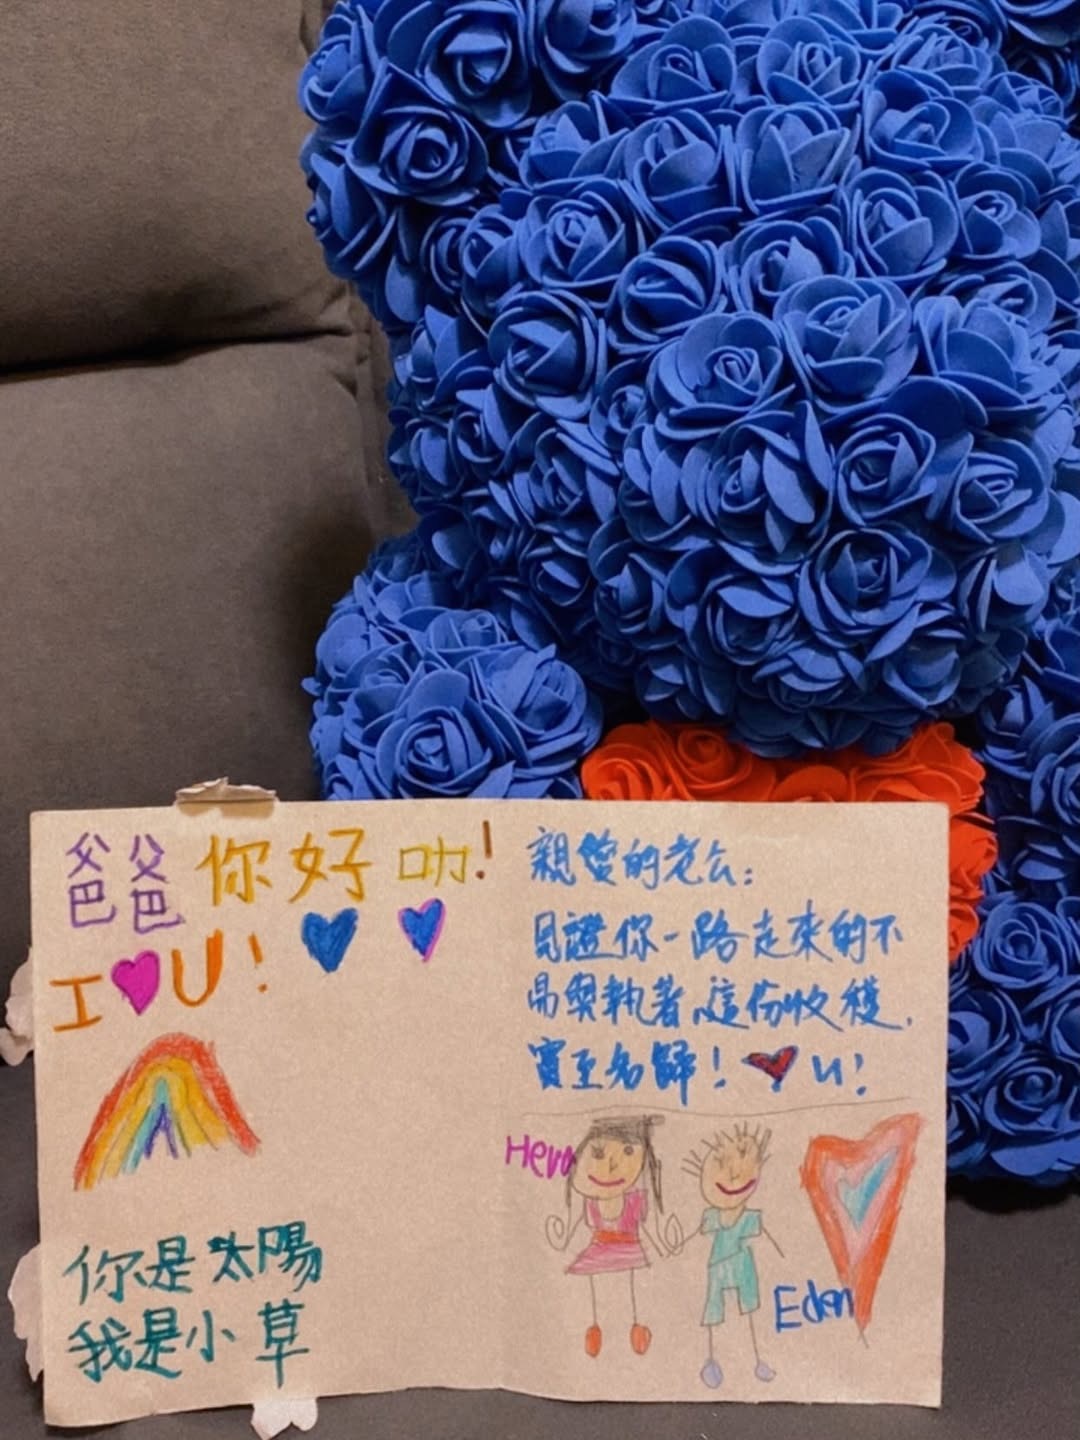 爸爸你好叻!
I ♥ U!
你是太陽
我是小草
親愛的老公:
見證你一路走來的不
易與執著,這份收穫,
實至名歸! ♥ u!
Hera
Eden